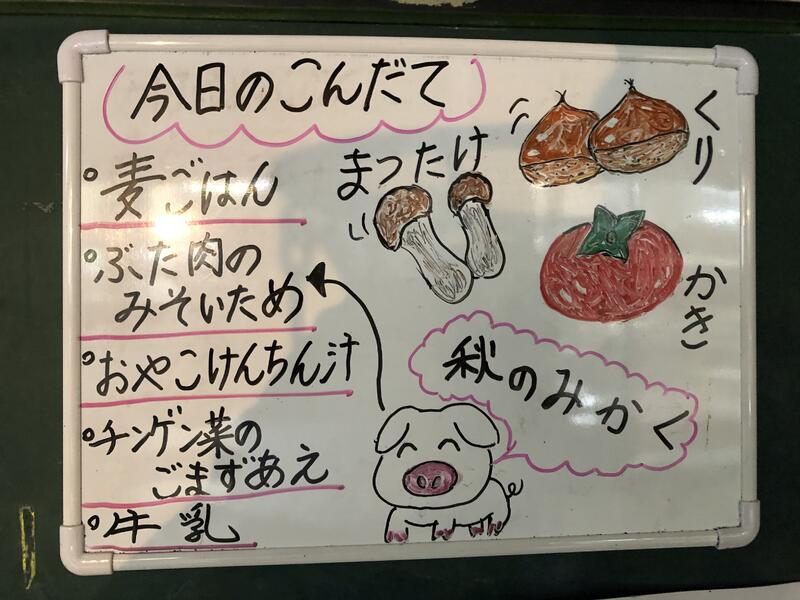 今日のこんだて
。麦ごはん
。ぶた肉の
みそいため
。おやこけんちん汁
。チンゲン菜の
ごまずあえ
。牛乳
まったけ
くり
かき
秋のみかく